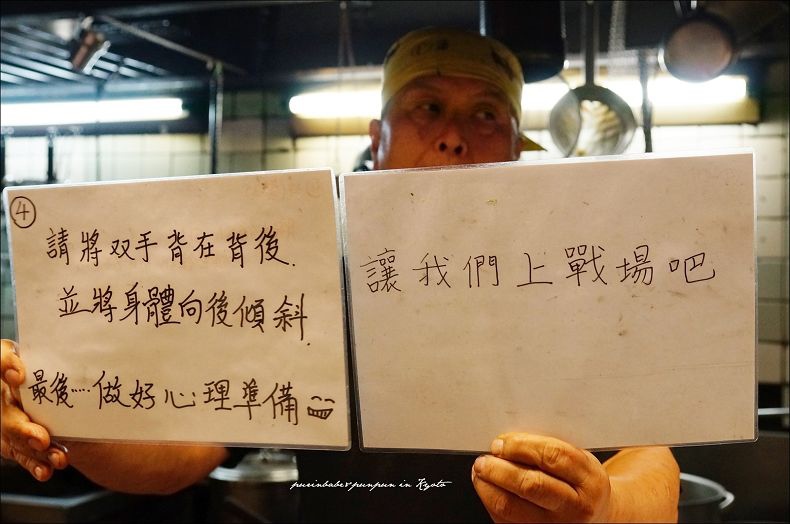 ④
請將双手背在背後.
並將身體向後傾斜.
最後....做好心理準備
讓我們上戰場吧
purinbaby & punpun in Kyoto